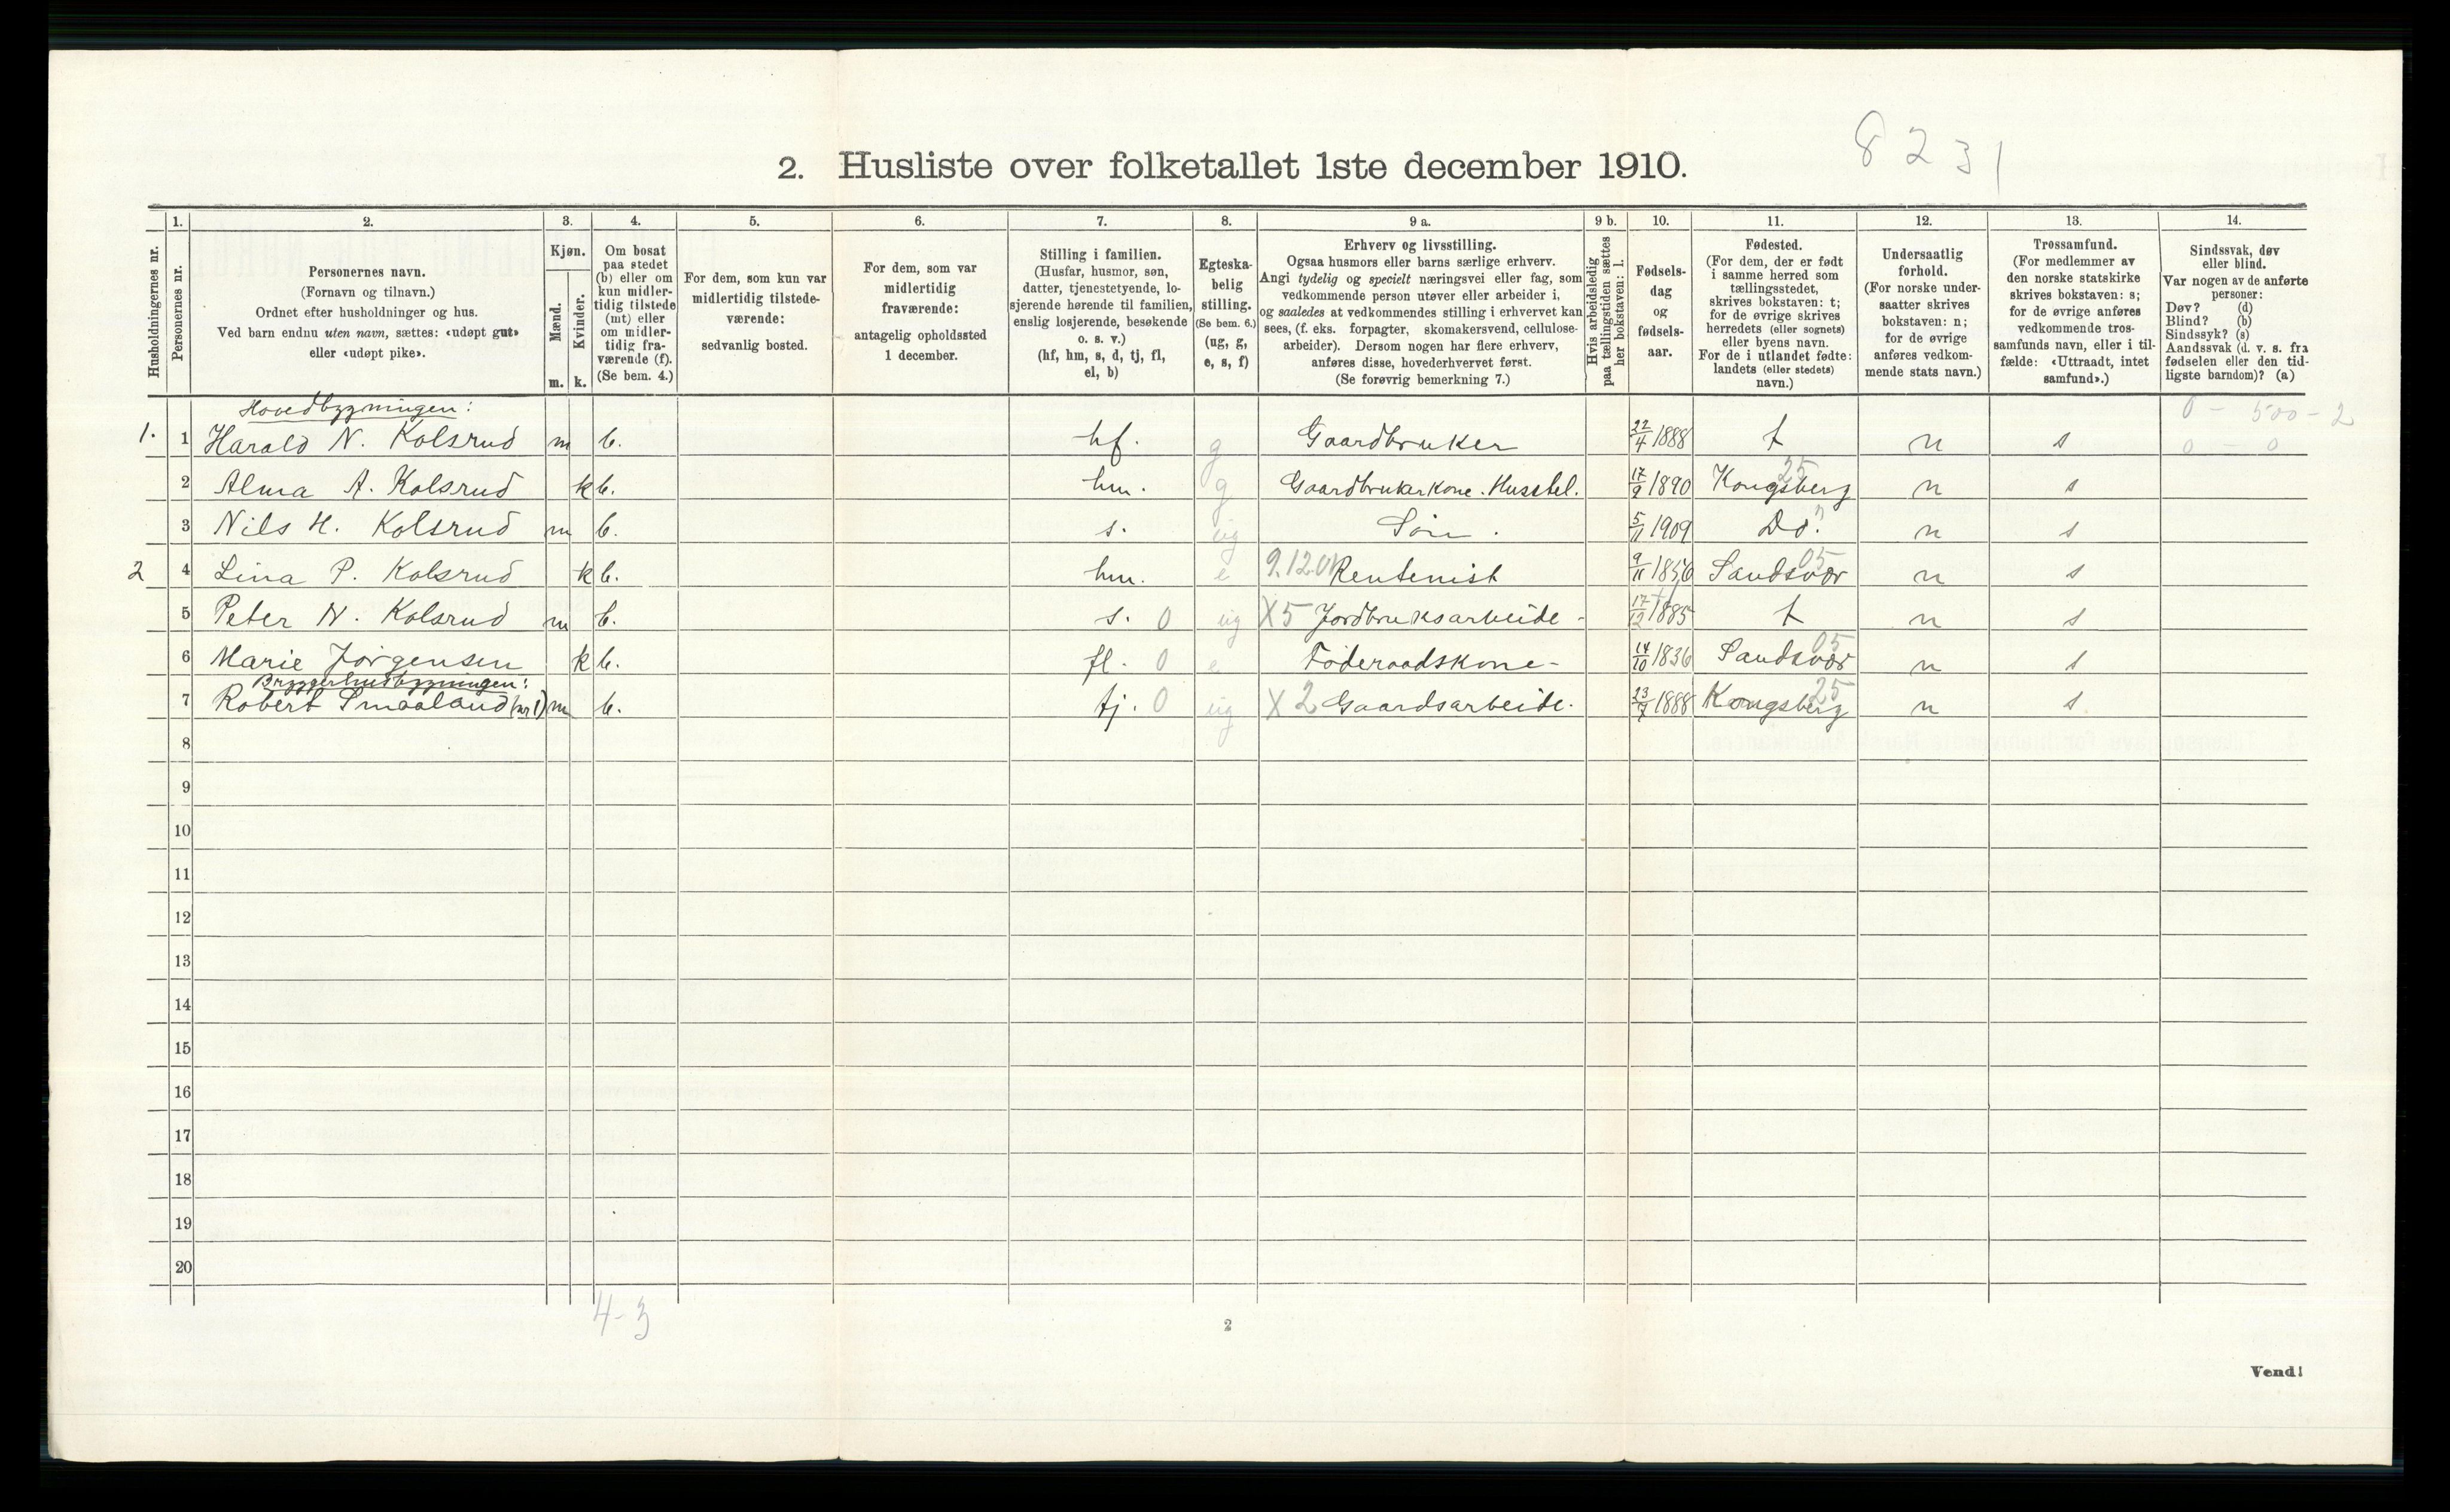 8 2 3 1
2. Husliste over folketallet 1ste december 1910.
Husholdningernes nr.
1. Personernes nr.
2. Personernes navn.
(Fornavn og tilnavn.)
Ordnet efter husholdninger og hus.
Ved barn endnu uten navn, sættes: «udøpt gut»
eller «udøpt pike».
3. Kjøn.
Mænd. m.
Kvinder. k.
4. Om bosat
paa stedet
(b) eller om
kun midler-
tidig tilstede
(mt) eller
om midler-
tidig fra-
værende (f).
(Se bem. 4.)
5. For dem, som kun var
midlertidig tilstede-
værende:
sedvanlig bosted.
6. For dem, som var
midlertidig
fraværende:
antagelig opholdssted
1 december.
7. Stilling i familien.
(Husfar, husmor, søn,
datter, tjenestetyende, lo-
sjerende hørende til familien,
enslig losjerende, besøkende
o. s. v.)
(hf, hm, s, d, tj, fl,
el, b)
8. Egteska-
belig
stilling.
(Se bem. 6.)
(ug, g,
e, s, f)
9 a. Erhverv og livsstilling.
Ogsaa husmors eller barns særlige erhverv.
Angi tydelig og specielt næringsvei eller fag, som
vedkommende person utøver eller arbeider i,
og saaledes at vedkommendes stilling i erhvervet kan
sees, (f. eks. forpagter, skomakersvend, cellulose-
arbeider). Dersom nogen har flere erhverv,
anføres disse, hovederhvervet først.
(Se forøvrig bemerkning 7.)
9 b. Hvis arbeidsledig
paa tællingstiden sættes
her bokstaven: l.
10. Fødsels-
dag
og
fødsels-
aar.
11. Fødested.
(For dem, der er født
i samme herred som
tællingsstedet,
skrives bokstaven: t;
for de øvrige skrives
herredets (eller sognets)
eller byens navn.
For de i utlandet fødte:
landets (eller stedets)
navn.)
12. Undersaatlig
forhold.
(For norske under-
saatter skrives
bokstaven: n;
for de øvrige
anføres vedkom-
mende stats navn.)
13. Trossamfund.
(For medlemmer av
den norske statskirke
skrives bokstaven: s;
for de øvrige anføres
vedkommende tros-
samfunds navn, eller i til-
fælde: «Uttraadt, intet
samfund».)
14. Sindssvak, døv
eller blind.
Var nogen av de anførte
personer:
Døv? (d)
Blind? (b)
Sindssyk? (s)
Aandssvak (d. v. s. fra
fødselen eller den tid-
ligste barndom)? (a)
Hovedbygningen: 0 - 500 - 2
1. 1 Harald N. Kolsrud m b. hf. g Gaardbruker 22/4 1888 t n s 0 - 0
2 Alma A. Kolsrud k b. hm. g Gaardbrukerkone. Husstel. 17/9 1890 Kongsberg 25 n s
3 Nils H. Kolsrud m b. s. ug Søn. 5/11 1909 Do. n s
2 4 Lina P. Kolsrud k b. hm. e 9.12.01 Rentenist 9/11 1856 Sandsvær 05 n s
5 Peter N. Kolsrud m b. s. 0 ug X5 Jordbruksarbeide - 17/12 1885 t n s
6 Marie Jørgensen k b. fl. 0 e Føderaadskone - 14/10 1836 Sandsvær 05 n s
Bryggerhusbygningen:
7 Robert Smaaland (nr 1) m b. tj. 0 ug X 2 Gaardsarbeide. 23/7 1888 Kongsberg 25 n s
8
9
10
11
12
13
14
15
16
17
18
19
20
4-3
2
Vend!